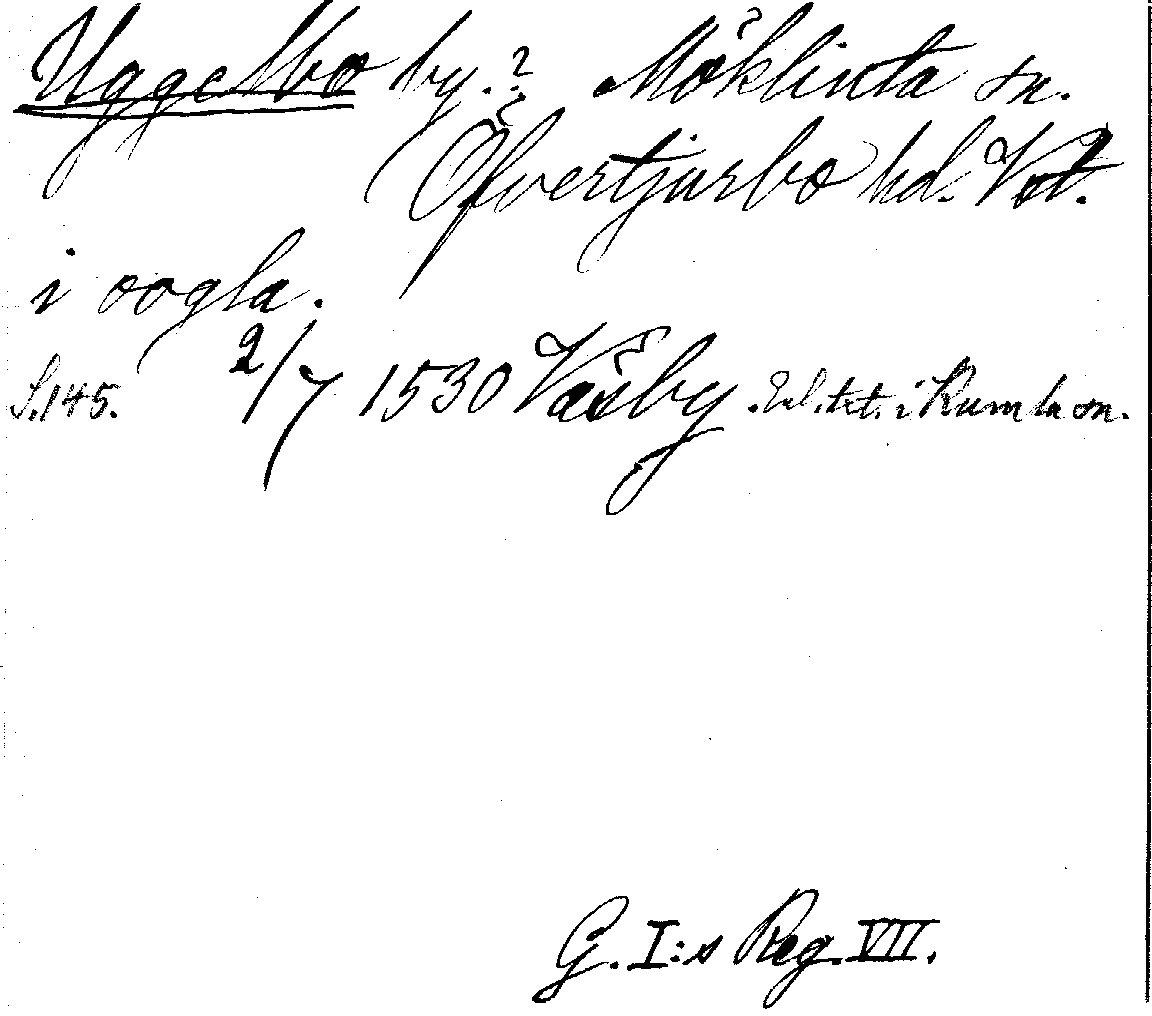 Uggelbo by.? Möklinta sn.
Öfvertjurbo hd. Vstm.
i oogla.
S.145. 2/7 1530 Väsby. i Kumla sn.
G. I:s Reg. VII.